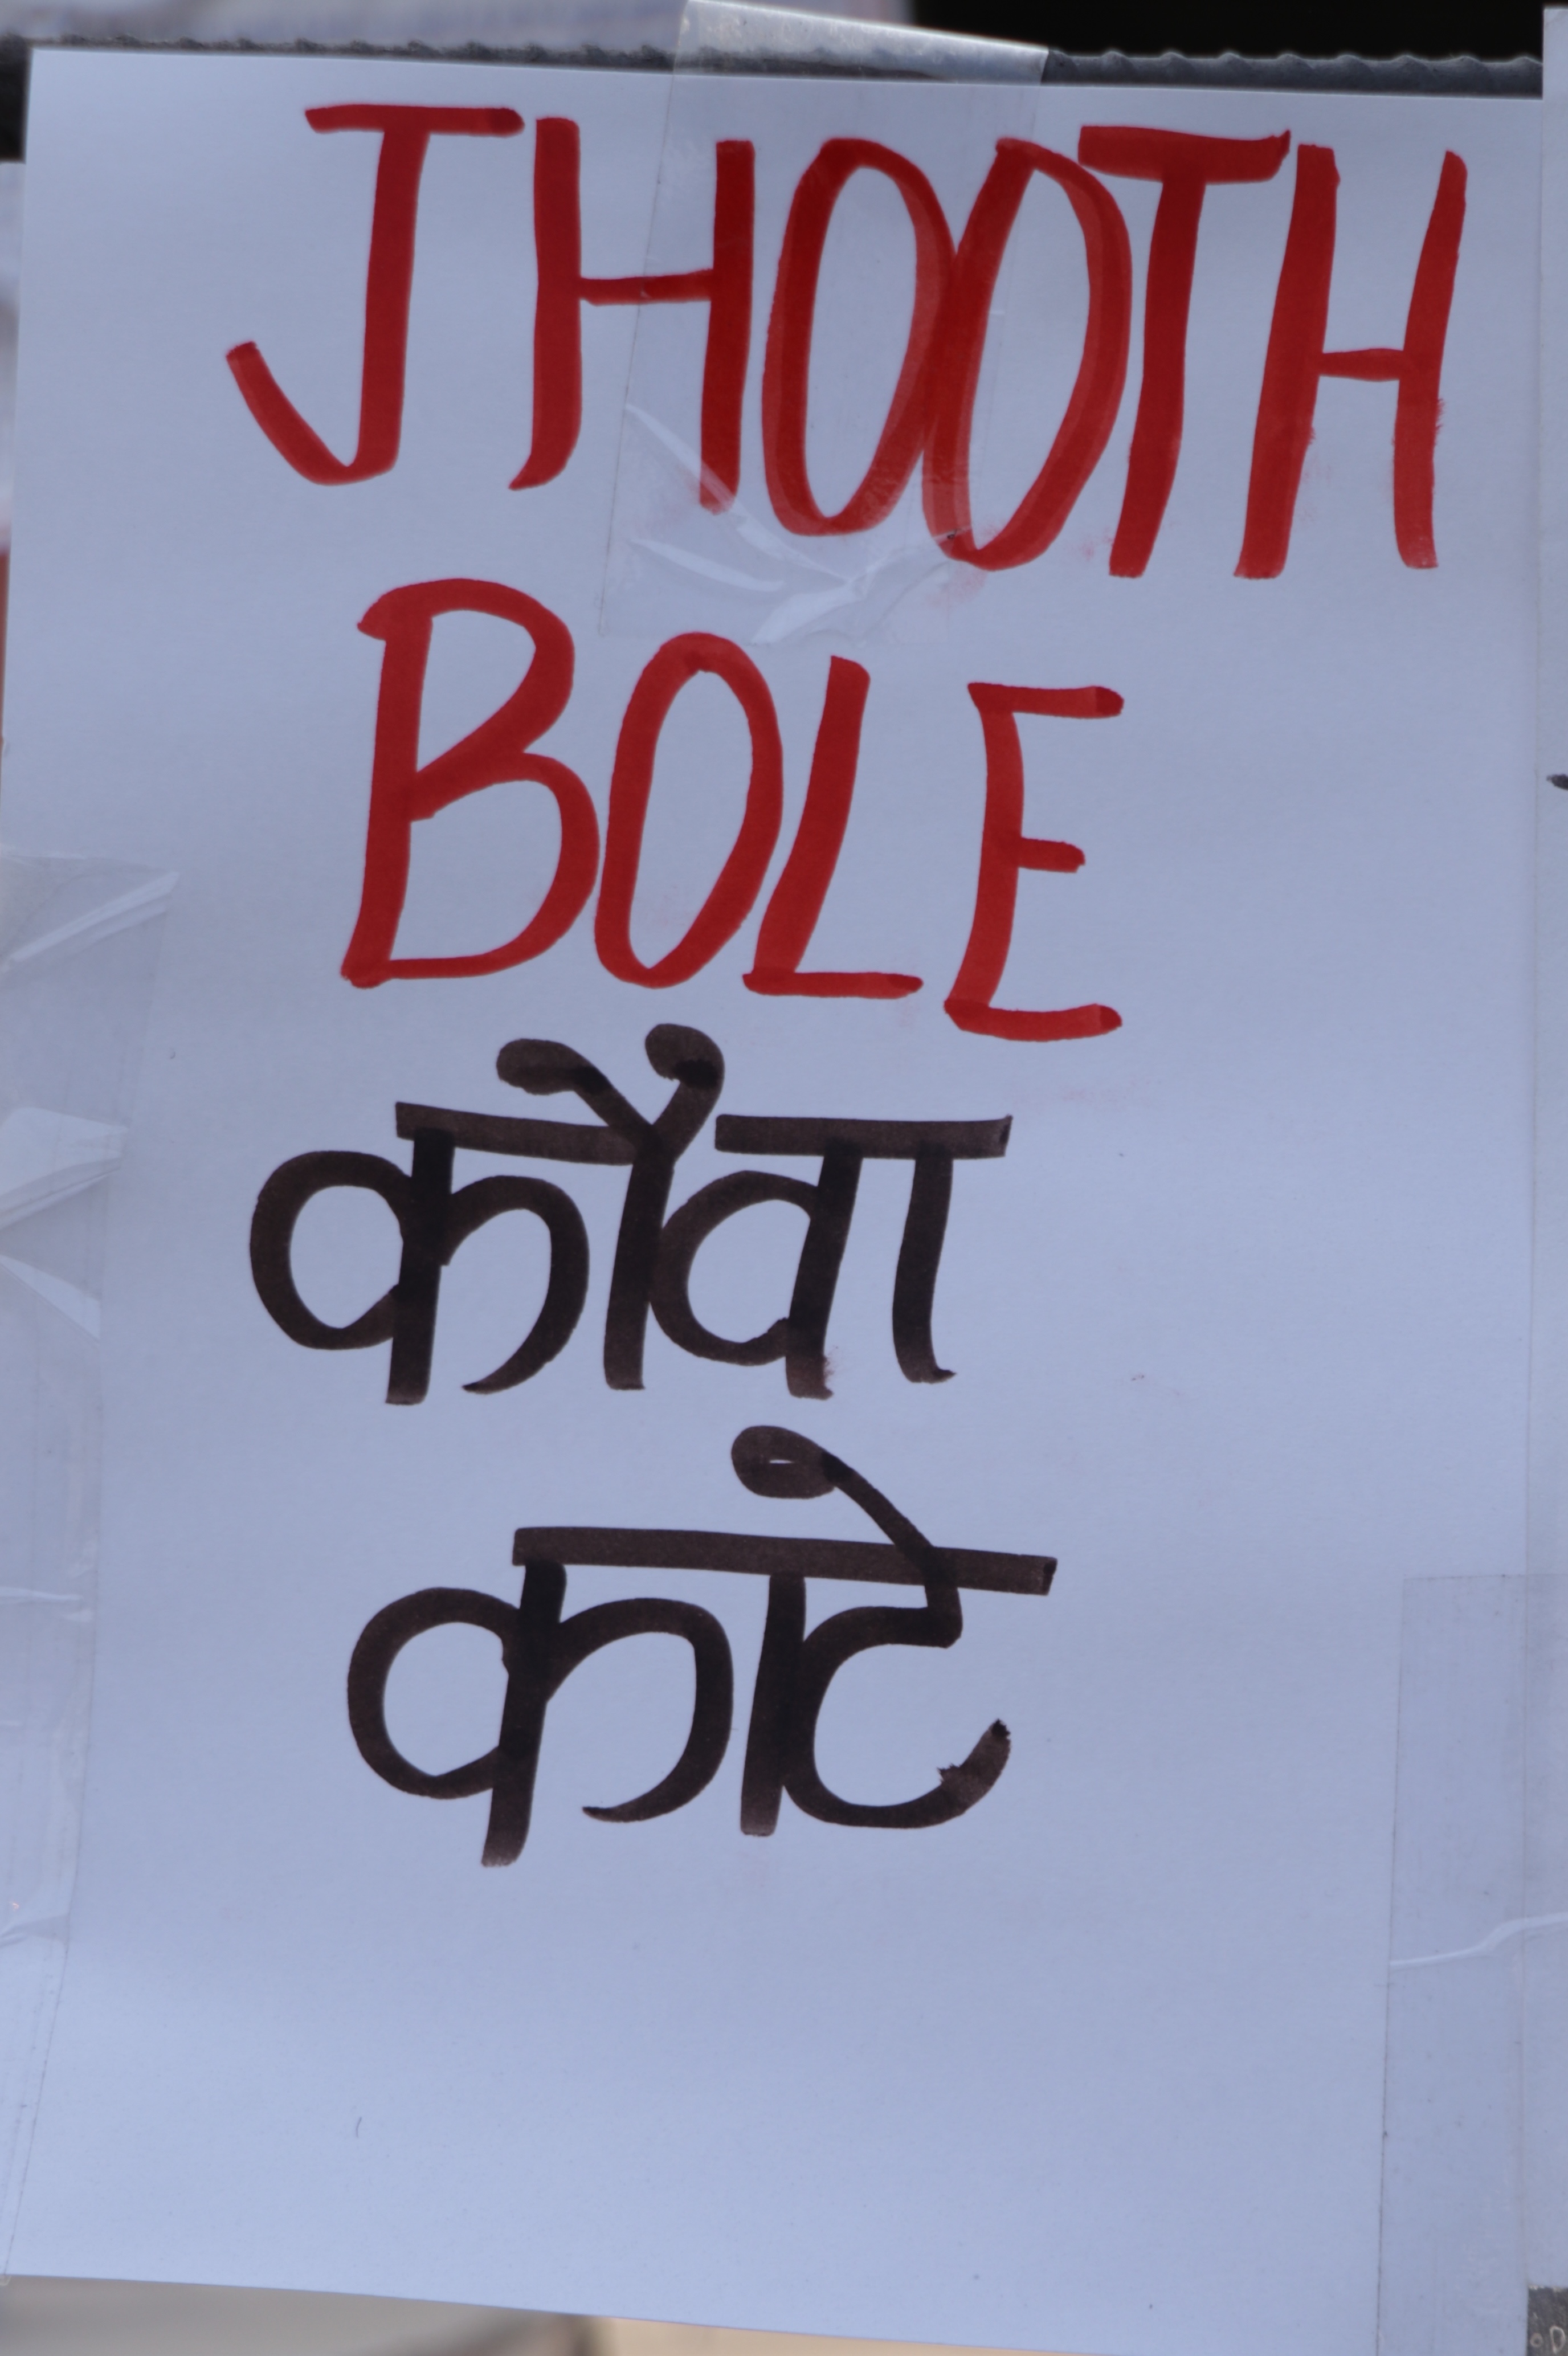 JHOOTH
BOLE
कौवा
काटे